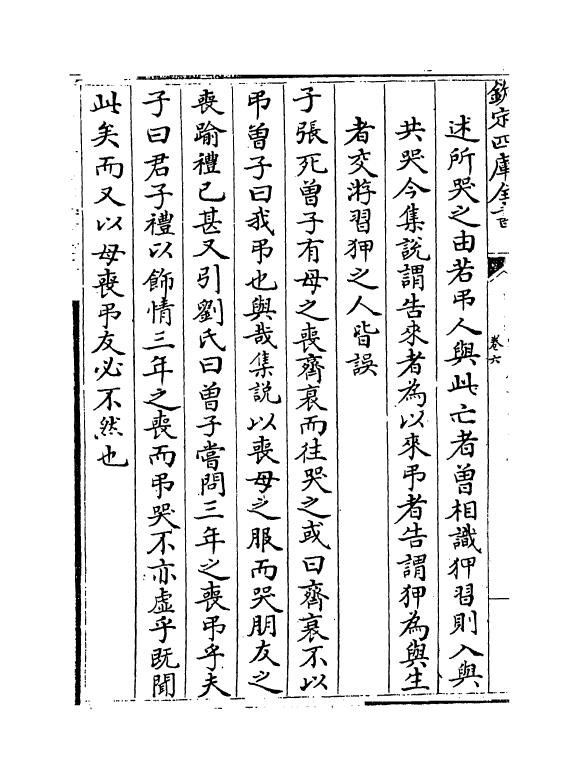 欽定四庫全書
卷六
述所哭之由若弔人與此亡者曽相識狎習則入與
共哭今集說謂告來者為以來弔者告謂狎為與生
者交游習狎之人皆誤
子張死曽子有母之喪齊衰而往哭之或曰齊衰不以
弔曽子曰我弔也與哉集說以喪母之服而哭朋友之
喪踰禮已甚又引劉氏曰曽子嘗問三年之喪弔乎夫
子曰君子禮以飾情三年之喪而弔哭不亦虚乎既聞
此矣而又以母喪弔友必不然也